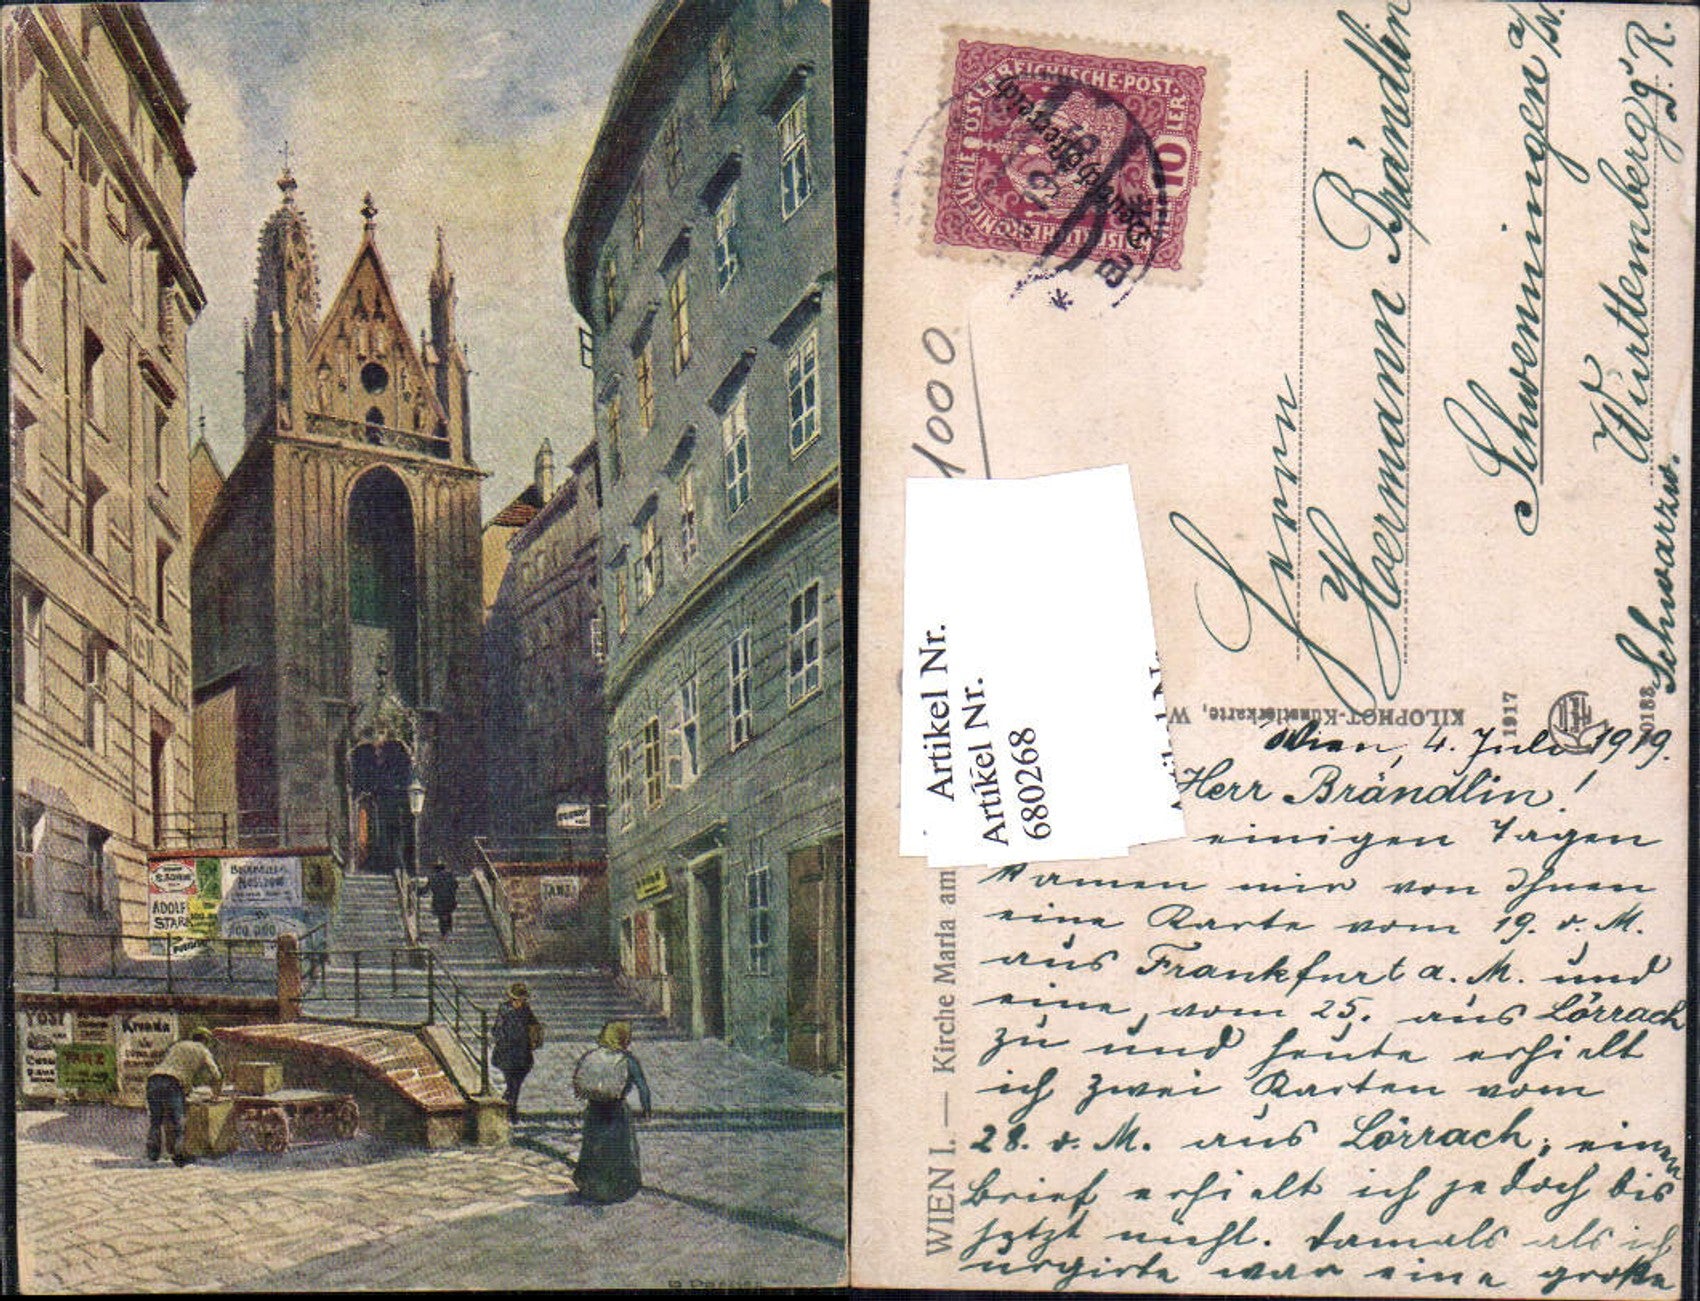 S. BOHM
ADOLF
STARK
TANZ
POST
Kronda
TANZ
KÖNIGLICHE ÖSTERREICHISCHE POST
10
Deutschösterreich
1000
Artikel Nr.
Artikel Nr.
680268
Artikel Nr.
Herrn
Hoermann Brändlin
Schwenningen a/N.
Württemberg
Schwarzw.
D. R.
KILOPHOT-Künstlerkarte, W
1917
20188
WIEN I. — Kirche Maria am
Wien, 4. Juli 1919.
Herr Brändlin!
einigen Tagen
kamen mir von Ihnen
eine Karte vom 19. v. M.
aus Frankfurt a. M. und
eine vom 25. aus Lörrach
zu und heute erhielt
ich zwei Karten vom
28. v. M. aus Lörrach, einen
Brief erhielt ich jedoch bis
jetzt nicht. Damals als ich
urgirte war eine große